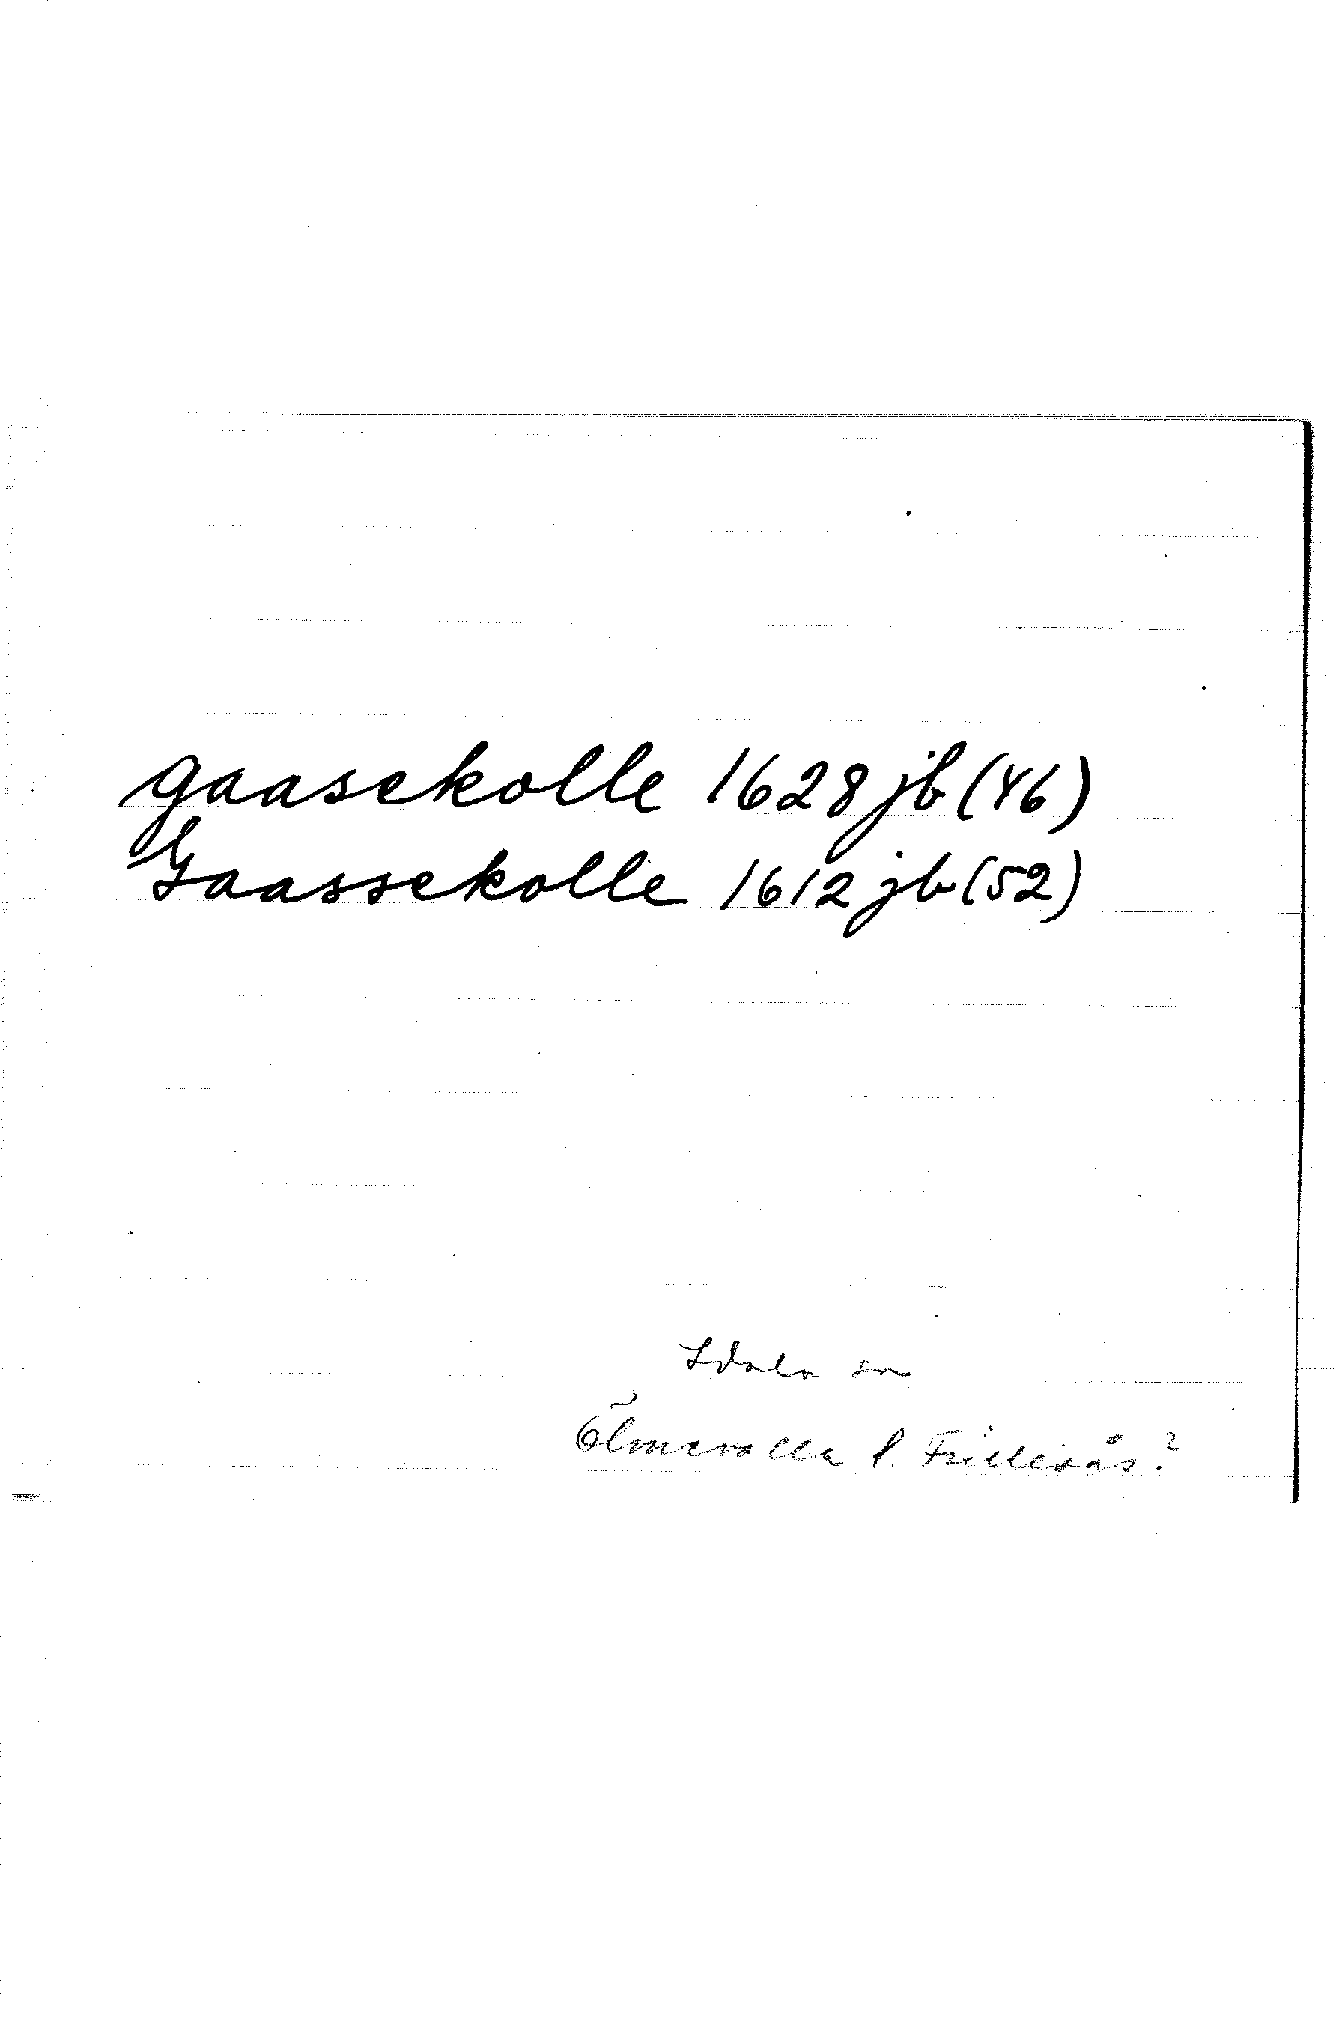 gaasekolle 1628 jb (46)
Gaassekolle 1612 jb (52)
Idala sn
Ölmevalla l. Frillesås?